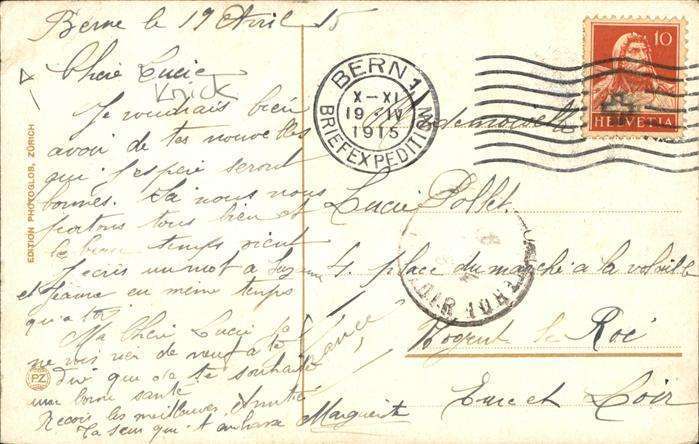 Berne le 19 Avril 15
Chère Lucie
Knick
Je voudrais bien
avoir de tes nouvelles
qui j'espère seront
bonnes. Ici nous nous
portons tous bien et
le beau temps vient
J'écris un mot à
et Jeanne en même temps
qu'a toi
Ma Chère Lucie je
ne vois rien de neuf a te
dire que de te souhaiter
une bonne santé
Reçois les meilleures Amitiés
Ta sœur qui t'embrasse Marguerite
EDITION PHOTOGLOB, ZÜRICH
PZ
BERN 1
X–XI
19·IV
1915
BRIEFEXPEDITION
10
HELVETIA
Mademoiselle
Lucie Pollet
4. place du marché à la volaille
Nogent le Roi
Eure et Loir
France